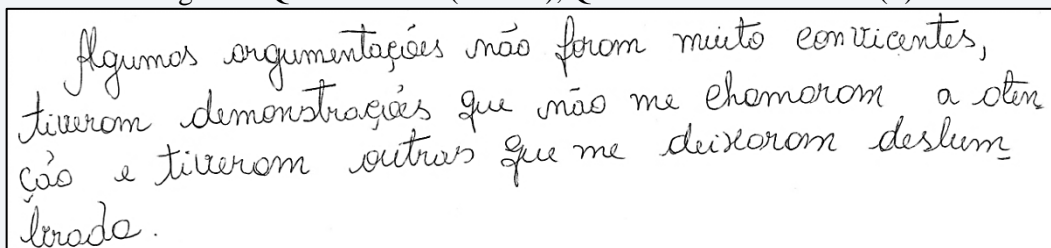 Algumas argumentações não foram muito convicentes,
tiveram demonstrações que não me chamaram a aten
ção e tiveram outras que me deixaram deslum
brada.